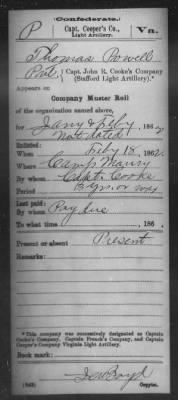 (Confederate.)
P Capt. Cooper's Co., Va.
Light Artillery.
Thomas Powell
Pvt, Capt. John R. Cooke's Company
(Stafford Light Artillery).
Appears on
Company Muster Roll
of the organization named above,
for Jany & Feby, 1862
Not dated
Enlisted:
When Feby 18, 1862.
Where Camp Maury
By whom Capt. Cooke
Period 2 yrs. or war
Last paid:
By whom Pay due
To what time , 186 .
Present or absent Present
Remarks:
*This company was successively designated as Captain
Cooke's Company, Captain French's Company, and Captain
Cooper's Company Virginia Light Artillery.
Book mark:
(642) Copyist.